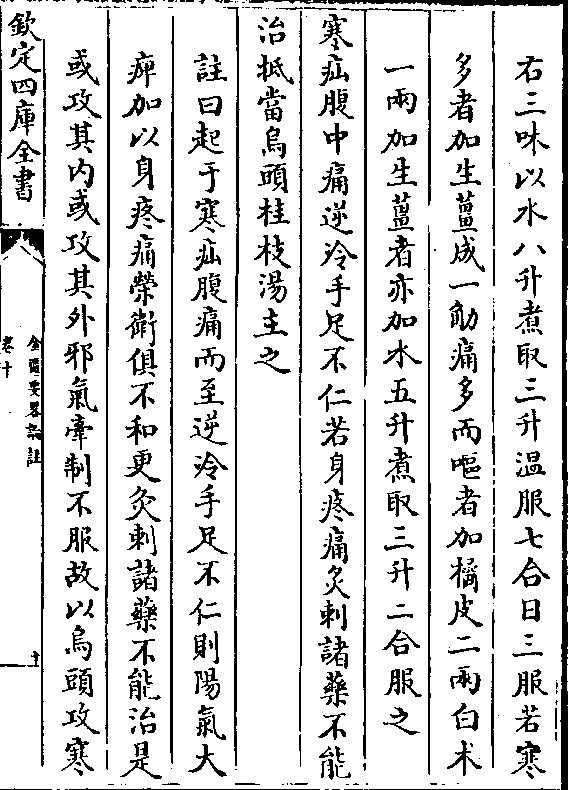 右三味以水八升煮取三升温服七合日三服若寒
多者加生薑成一觔痛多而嘔者加橘皮二兩白术
一兩加生薑者亦加水五升煮取三升二合服之
寒疝腹中痛逆冷手足不仁若身疼痛灸刺諸藥不能
治抵當烏頭桂枝湯主之
註曰起于寒疝腹痛而至逆冷手足不仁則陽氣大
痺加以身疼痛榮衛俱不和更灸刺諸藥不能治是
或攻其内或攻其外邪氣牽制不服故以烏頭攻寒
欽定四庫全書
金匱要畧論註
卷十